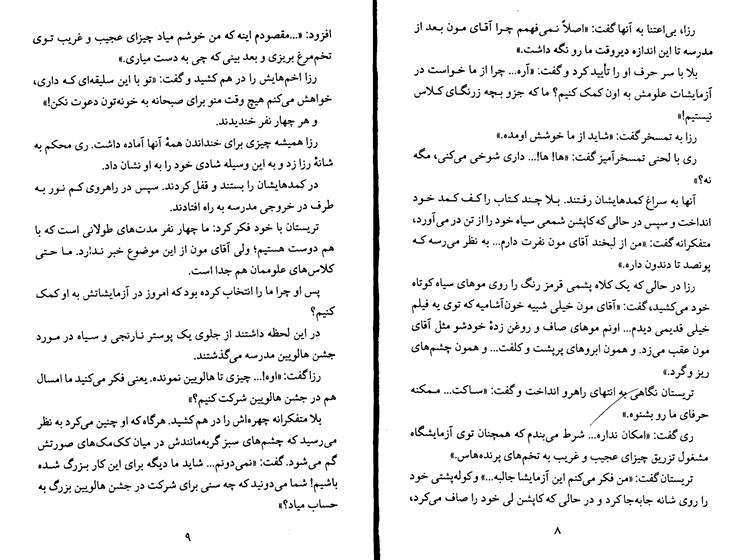 رزا، بی‌اعتنا به آنها گفت: «اصلاً نمی‌فهمم چرا آقای مون بعد از
مدرسه تا این اندازه دیروقت ما رو نگه داشت.»
بلا با سر حرف او را تأیید کرد و گفت: «آره... چرا از ما خواست در
آزمایشات علومش به اون کمک کنیم؟ ما که جزو بچه زرنگای کلاس
نیستیم!»
رزا به تمسخر گفت: «شاید از ما خوشش اومده.»
ری با لحنی تمسخرآمیز گفت: «ها! ها!... داری شوخی می‌کنی، مگه
نه؟»
آنها به سراغ کمدهایشان رفتند. بلا چند کتاب را کف کمد خود
انداخت و سپس در حالی که کاپشن شمعی سیاه خود را از تن در می‌آورد،
متفکرانه گفت: «من از لبخند آقای مون نفرت دارم... به نظر می‌رسه که
پونصد تا دندون داره.»
رزا در حالی که یک کلاه پشمی قرمز رنگ را روی موهای سیاه کوتاه
خود می‌کشید، گفت: «آقای مون خیلی شبیه خون‌آشامیه که توی یه فیلم
خیلی قدیمی دیدم... اونم موهای صاف و روغن زدهٔ خودشو مثل آقای
مون عقب می‌زد. و همون ابروهای پرپشت و کلفت... و همون چشم‌های
ریز و گرد.»
تریستان نگاهی به انتهای راهرو انداخت و گفت: «ساکت... ممکنه
حرفای ما رو بشنوه.»
ری گفت: «امکان نداره... شرط می‌بندم که همچنان توی آزمایشگاه
مشغول تزریق چیزای عجیب و غریب به تخم‌های پرنده‌هاس.»
تریستان گفت: «من فکر می‌کنم این آزمایشا جالبه...» و کوله‌پشتی خود
را روی شانه جابه‌جا کرد و در حالی که کاپشن لی خود را صاف می‌کرد،
۸
افزود: «...مقصودم اینه که من خوشم میاد چیزای عجیب و غریب توی
تخم‌مرغ بریزی و بعد بینی که چی به دست میاری.»
رزا اخم‌هایش را در هم کشید و گفت: «تو با این سلیقه‌ای که داری،
خواهش می‌کنم هیچ وقت منو برای صبحانه به خونه‌تون دعوت نکن!»
و هر چهار نفر خندیدند.
رزا همیشه چیزی برای خنداندن همهٔ آنها آماده داشت. ری محکم به
شانهٔ رزا زد و به این وسیله شادی خود را به او نشان داد.
در کمدهایشان را بستند و قفل کردند. سپس در راهروی کم نور به
طرف در خروجی مدرسه به راه افتادند.
تریستان با خود فکر کرد: ما چهار نفر مدت‌های طولانی است که با
هم دوست هستیم؛ ولی آقای مون از این موضوع خبر ندارد. ما حتی
کلاس‌های علوممان هم جدا است.
پس او چرا ما را انتخاب کرده بود که امروز در آزمایشاتش به او کمک
کنیم؟
در این لحظه داشتند از جلوی یک پوستر نارنجی و سیاه در مورد
جشن هالویین مدرسه می‌گذشتند.
رزا گفت: «اوه!... چیزی تا هالویین نمونده. یعنی فکر می‌کنید ما امسال
هم در جشن هالویین شرکت کنیم؟»
بلا متفکرانه چهره‌اش را در هم کشید. هرگاه که او چنین می‌کرد به نظر
می‌رسید که چشم‌های سبز گربه‌مانندش در میان کک‌مک‌های صورتش
گم می‌شود. گفت: «نمی‌دونم... شاید ما دیگه برای این کار بزرگ شده
باشیم! شما می‌دونید که چه سنی برای شرکت در جشن هالویین بزرگ به
حساب میاد؟»
۹